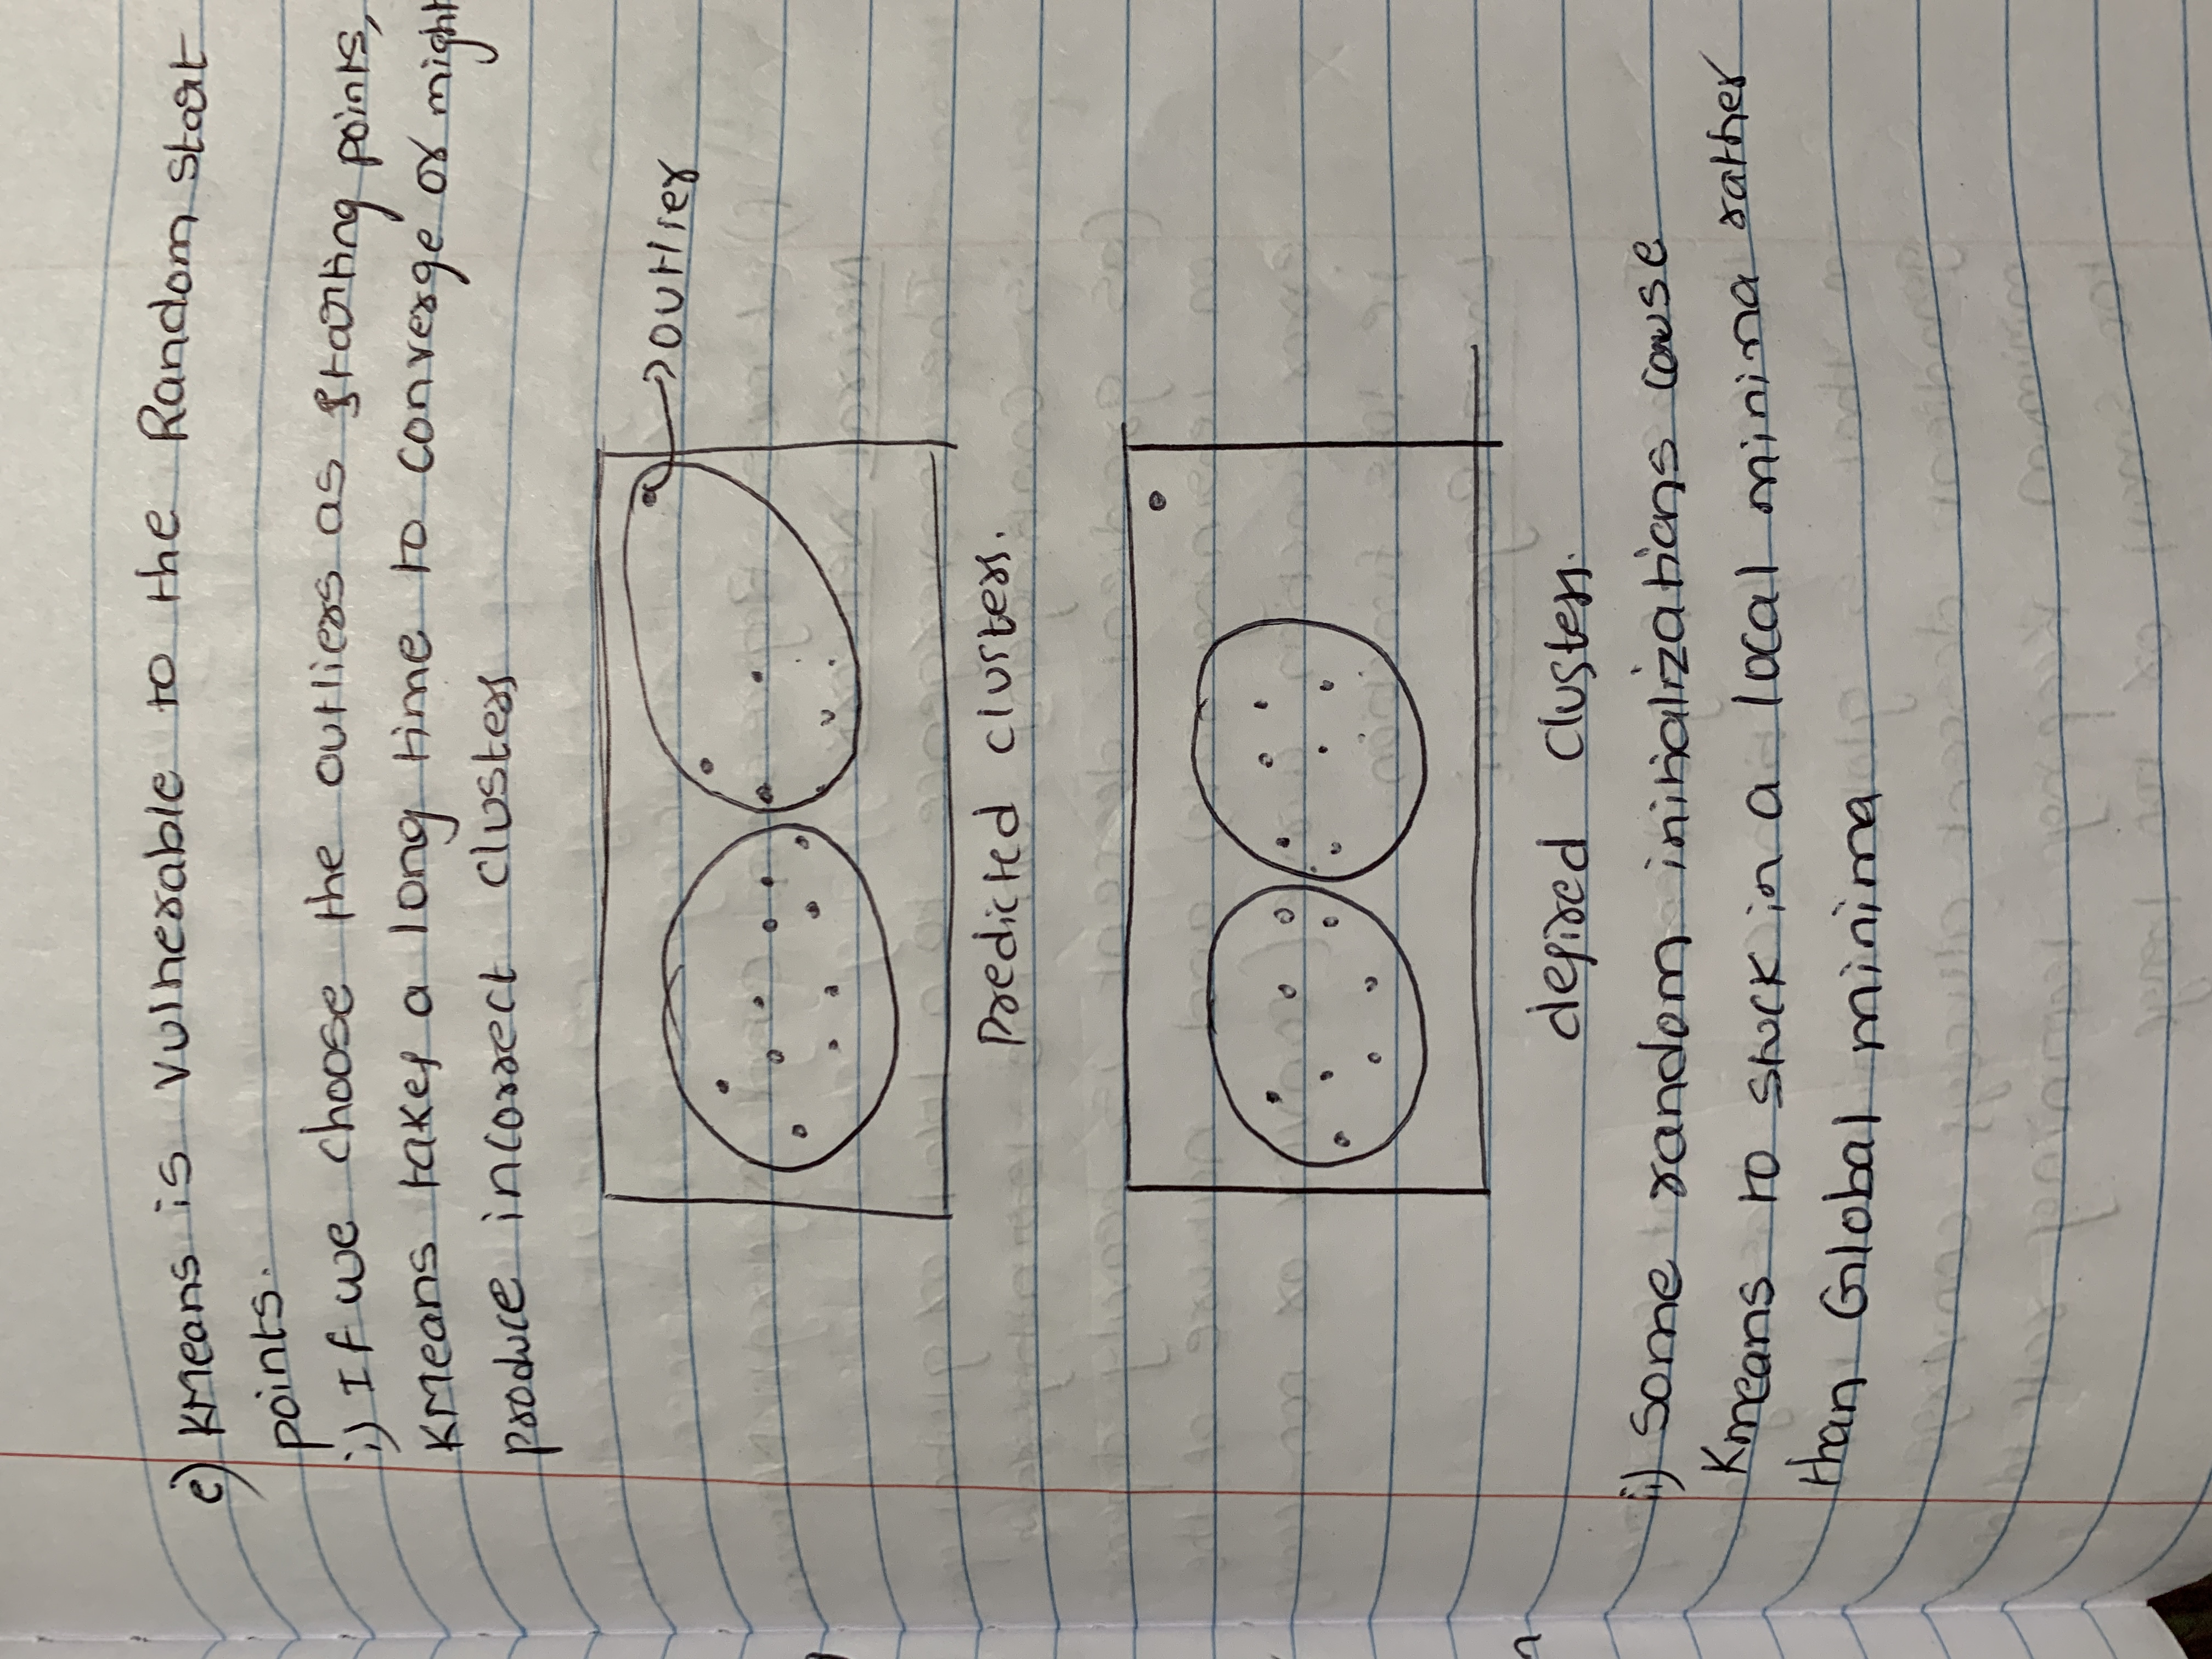 e) KMeans is Vulnerable to the Random start
points.
i) If we choose the outliers as starting points,
KMeans takes a long time to converge or might
produce incorrect clusters
outlier
Predicted clusters.
desired clusters.
ii) Some random initializations cause
Kmeans to stuck in a local minima rather
than Global minima